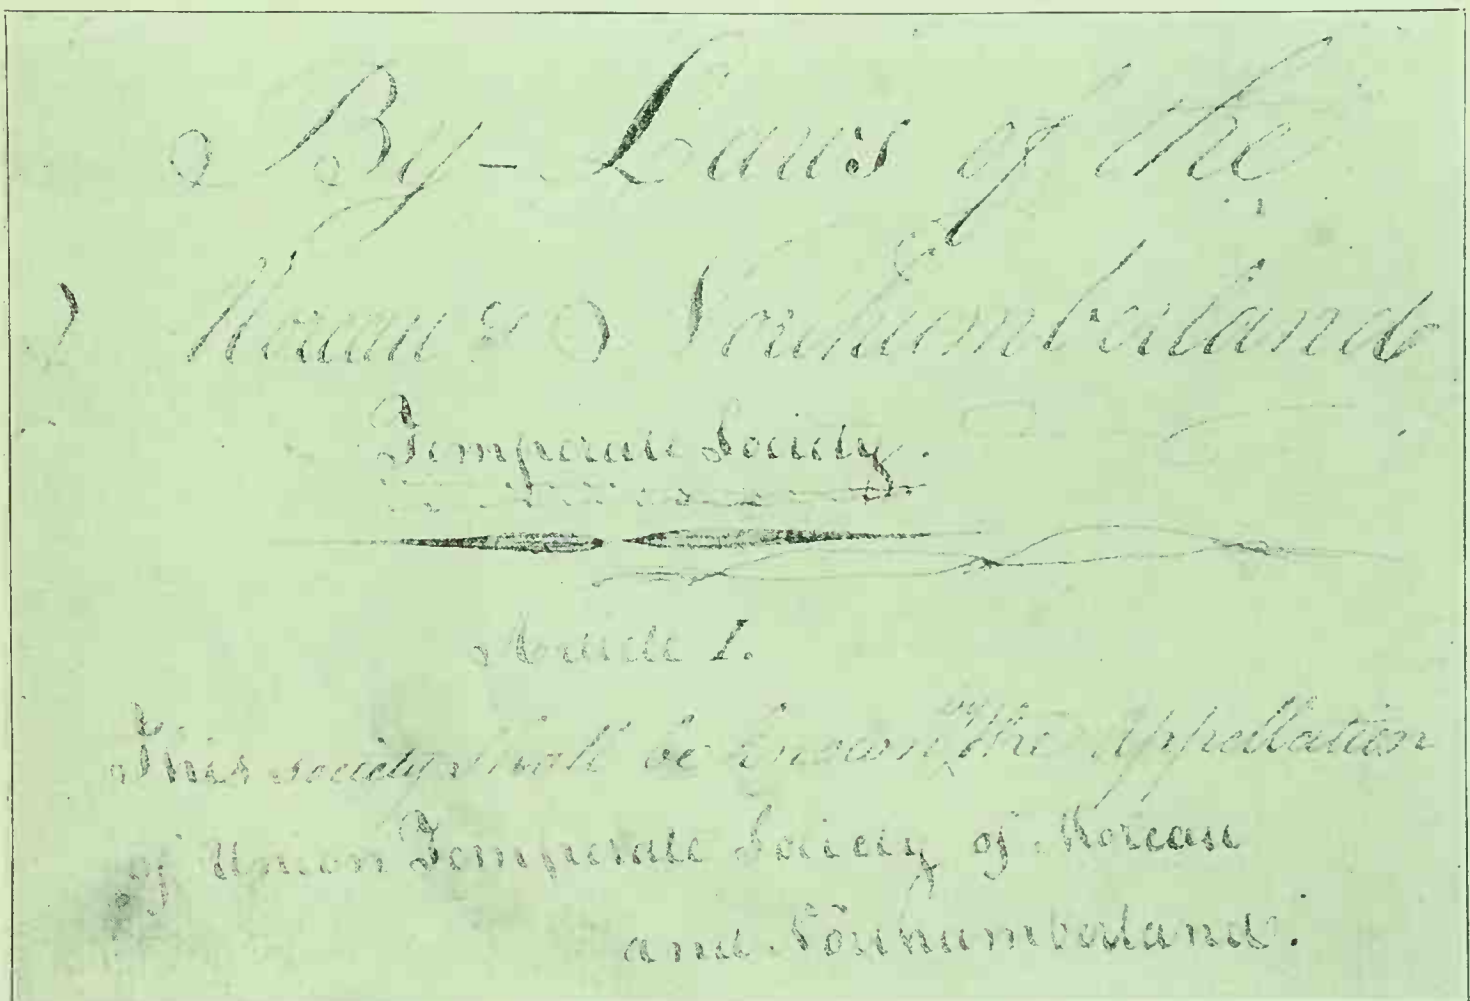 By-Laws of the
Moreau & Northumberland
Temperate Society.
Article I.
This society shall be known by the Appellation
of Union Temperate Society of Moreau
and Northumberland.